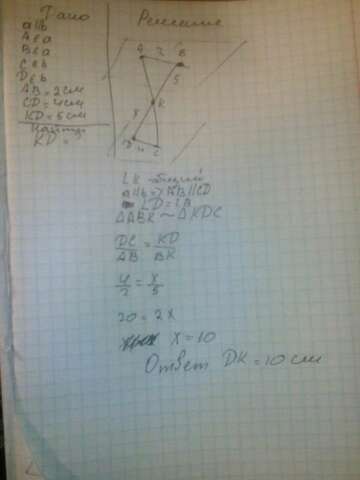 Дано
a||b
A∈a
B∈a
C∈b
D∈b
AB = 2см
CD = 4см
KD = 5см
Найти
KD = ?
Решение
A 2 B
5
K
x
D 4 C
∠K - общий
a||b => AB||CD
∠D = ∠B
△ABK ~ △KDC
DC/AB = KD/BK
4/2 = x/5
20 = 2x
x = 10
Ответ DK = 10 см